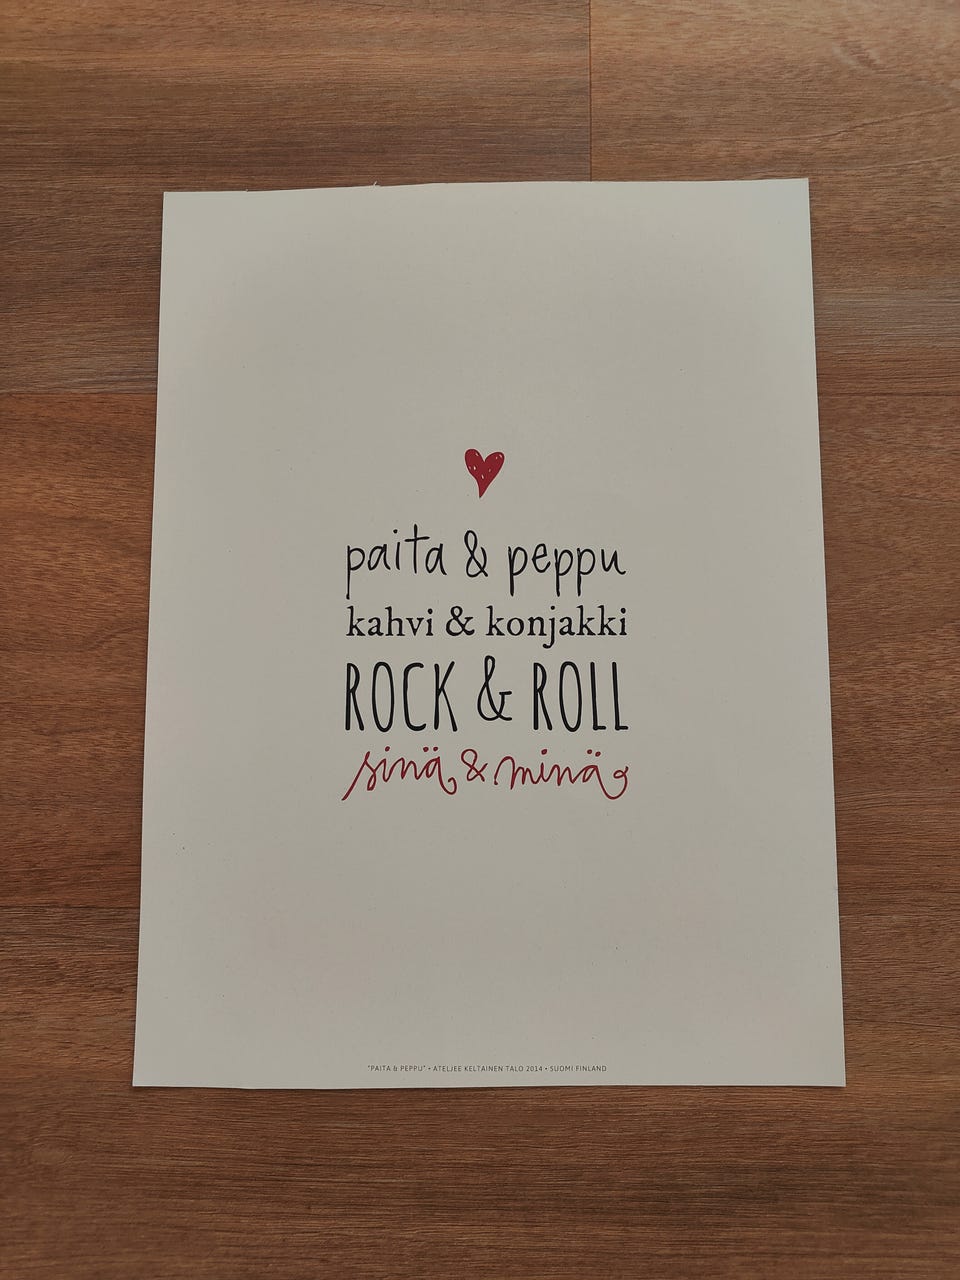 paita & peppu
kahvi & konjakki
ROCK & ROLL
sinä & minä
"PAITA & PEPPU" • ATELJEE KELTAINEN TALO 2014 • SUOMI FINLAND